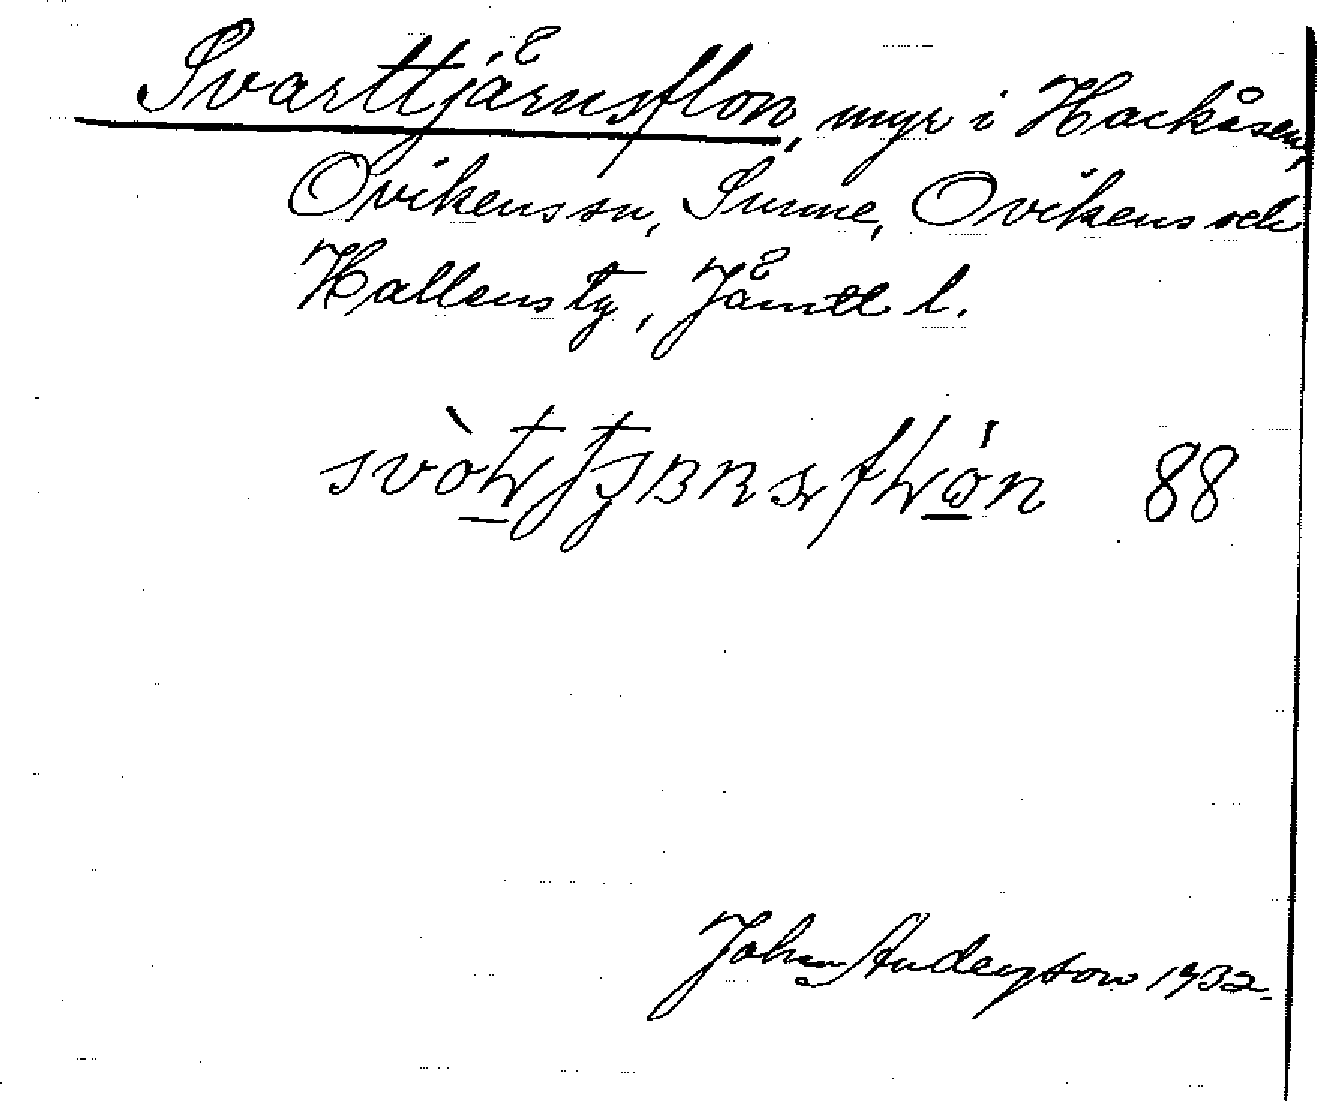 Svarttjärnsflon, myr i Hackåsen,
Ovikens sn, Sunne, Ovikens och
Hallens tg, Jämtl l.
88
Johan Anderson 1932.